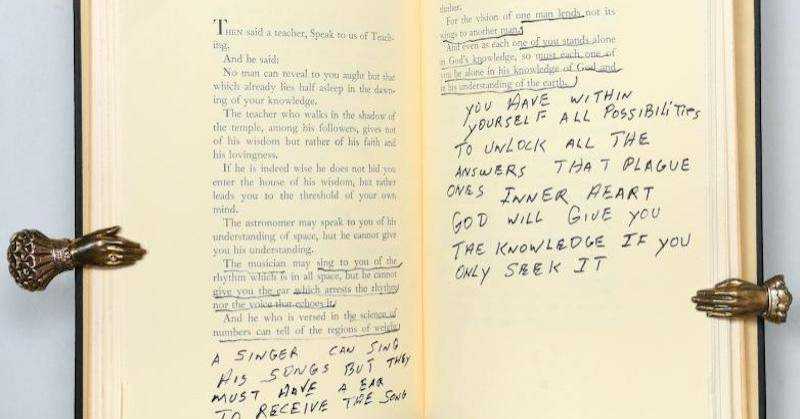 THEN said a teacher, Speak to us of Teach-
ing.
And he said:
No man can reveal to you aught but that
which already lies half asleep in the dawn-
ing of your knowledge.
The teacher who walks in the shadow of
the temple, among his followers, gives not
of his wisdom but rather of his faith and
his lovingness.
If he is indeed wise he does not bid you
enter the house of his wisdom, but rather
leads you to the threshold of your own
mind.
The astronomer may speak to you of his
understanding of space, but he cannot give
you his understanding.
The musician may sing to you of the
rhythm which is in all space, but he cannot
give you the ear which arrests the rhythm
nor the voice that echoes it.
And he who is versed in the science of
numbers can tell of the regions of weight
A SINGER CAN SING
HIS SONGS BUT THEY
MUST HAVE A EAR
TO RECEIVE THE SONG
thither.
For the vision of one man lends not its
wings to another man.
And even as each one of you stands alone
in God's knowledge, so must each one of
you be alone in his knowledge of God and
in his understanding of the earth.
YOU HAVE WITHIN
YOURSELF ALL POSSIBILITIES
TO UNLOCK ALL THE
ANSWERS THAT PLAGUE
ONES INNER HEART
GOD WILL GIVE YOU
THE KNOWLEDGE IF YOU
ONLY SEEK IT